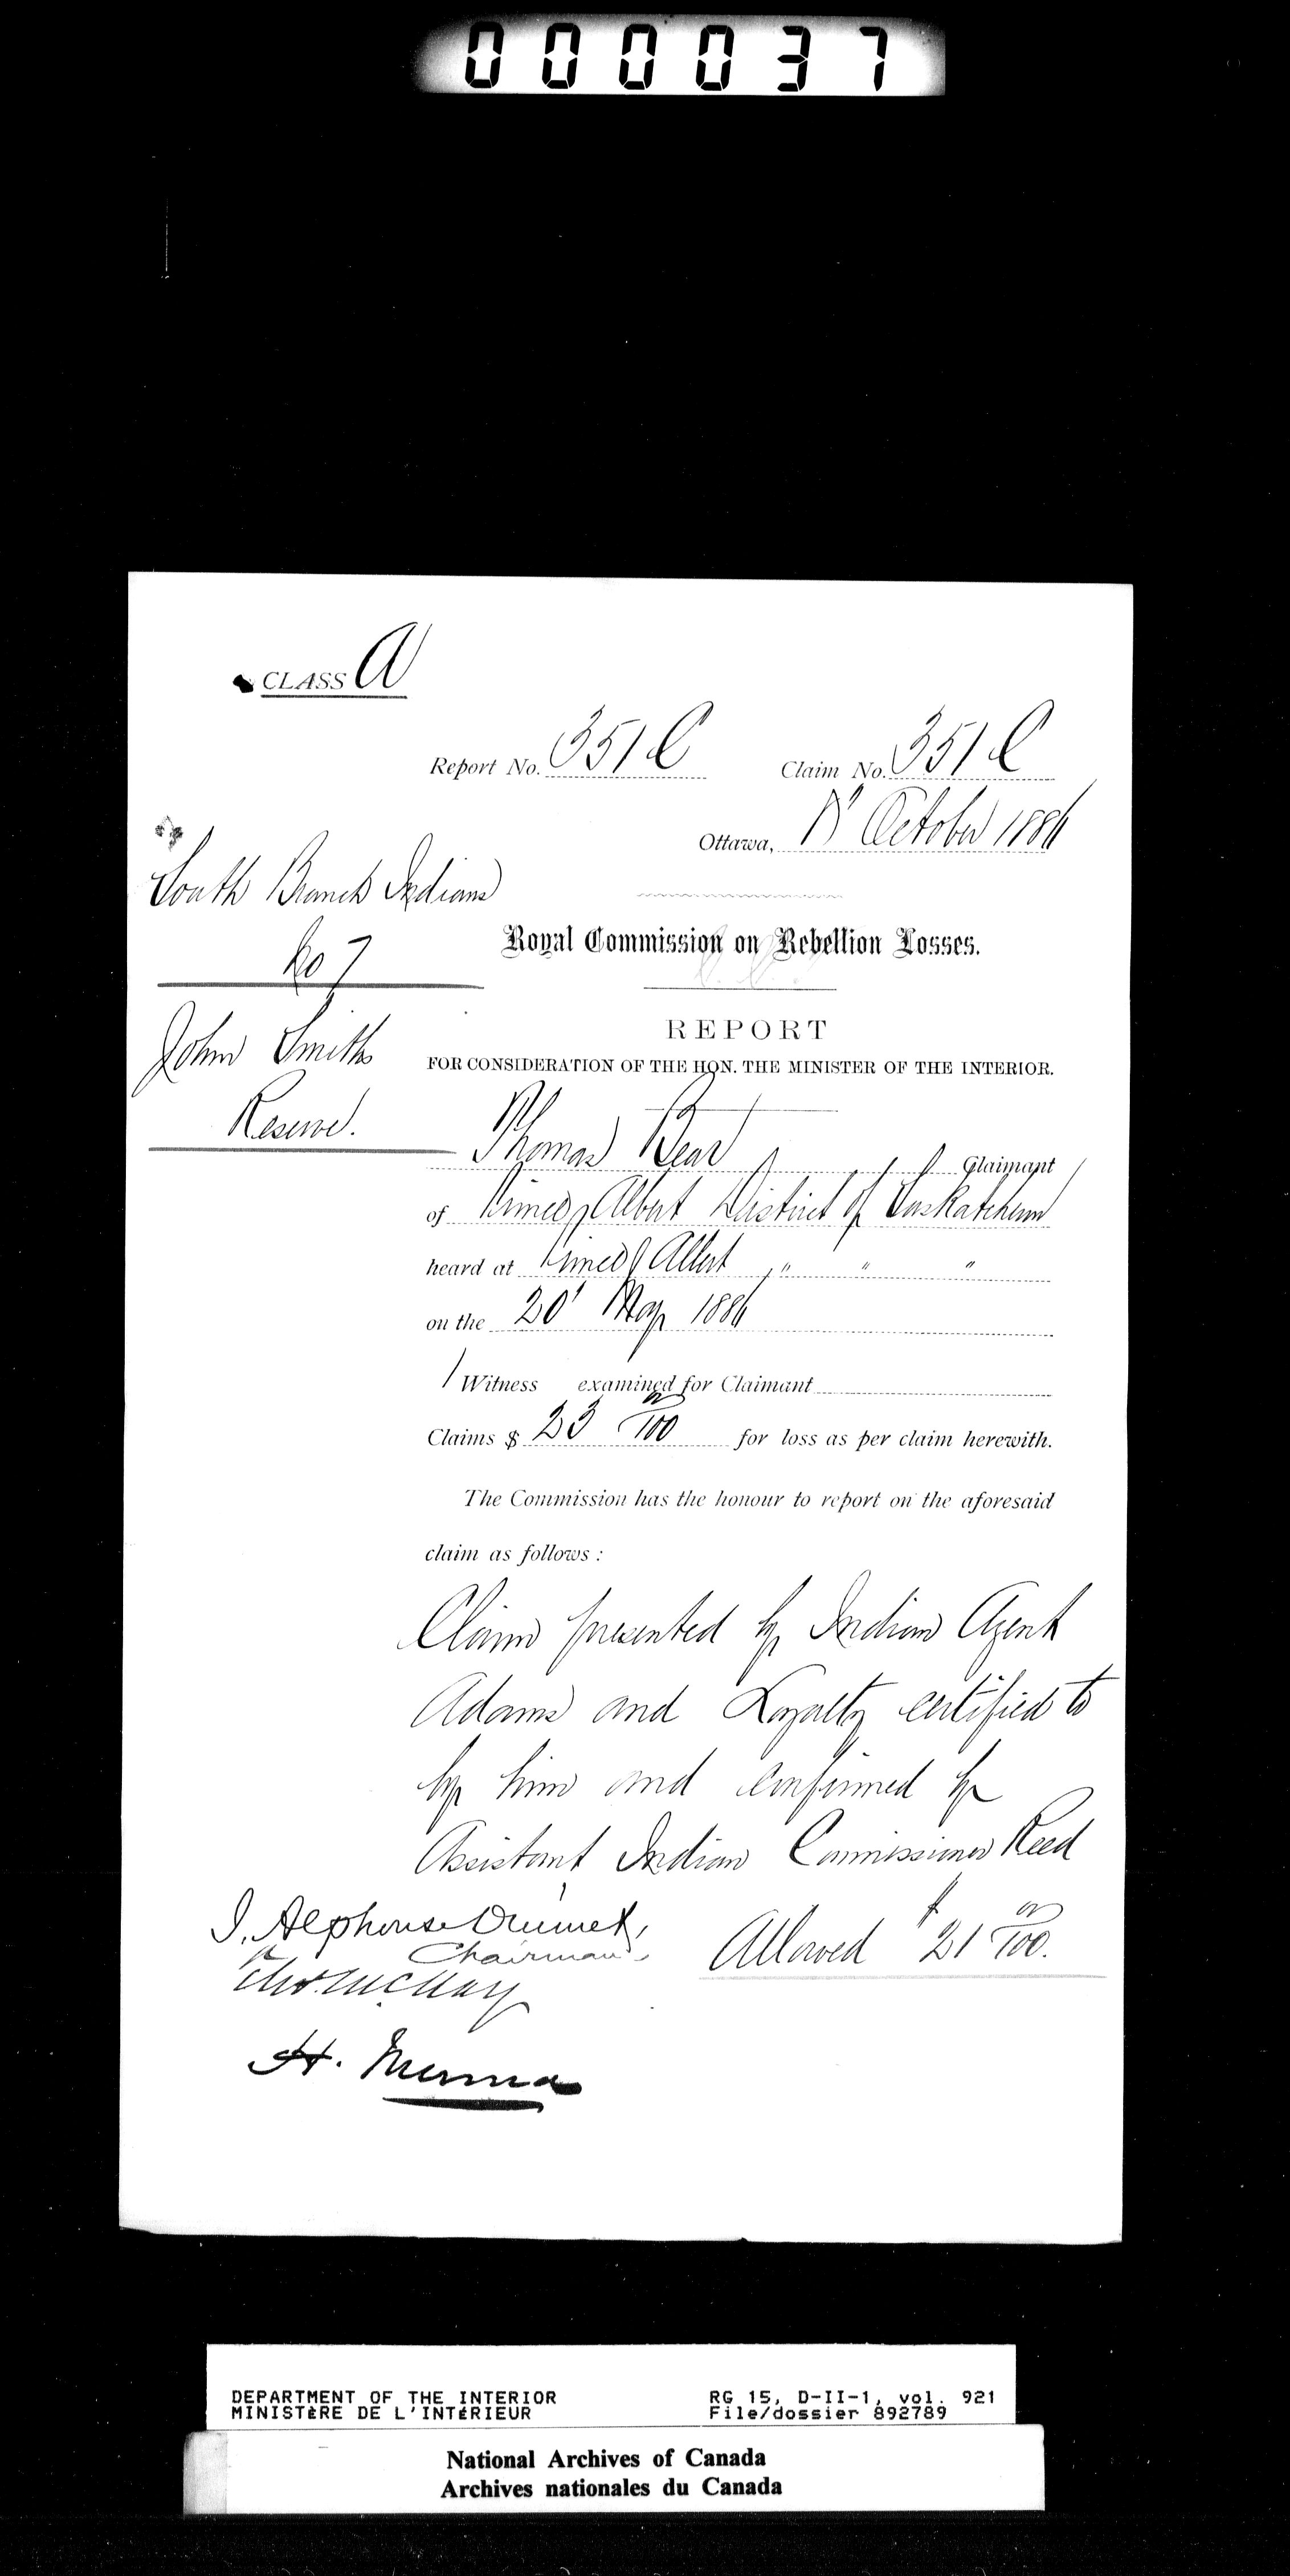 000037
CLASS A
Report No. 351 C Claim No. 351 C
Ottawa, October 1886
South Branch Indians
No 7
Royal Commission on Rebellion Losses.
John Smiths
Reserve.
REPORT
FOR CONSIDERATION OF THE HON. THE MINISTER OF THE INTERIOR.
Thomas Bear Claimant
of Prince Albert District of Saskatchewan
heard at Prince Albert " " "
on the 20' May 1886
1 Witness examined for Claimant
Claims $ 23 00/100 for loss as per claim herewith.
The Commission has the honour to report on the aforesaid
claim as follows :
Claim presented by Indian Agent
Adams and Loyalty certified to
by him and confirmed by
Assistant Indian Commissioner Reed
Allowed $21 00/100.
J. Alphonse Ouimet,
Chairman,
Tho. McKay
H. Muma
DEPARTMENT OF THE INTERIOR RG 15, D-II-1, vol. 921
MINISTÈRE DE L'INTÉRIEUR File/dossier 892789
National Archives of Canada
Archives nationales du Canada